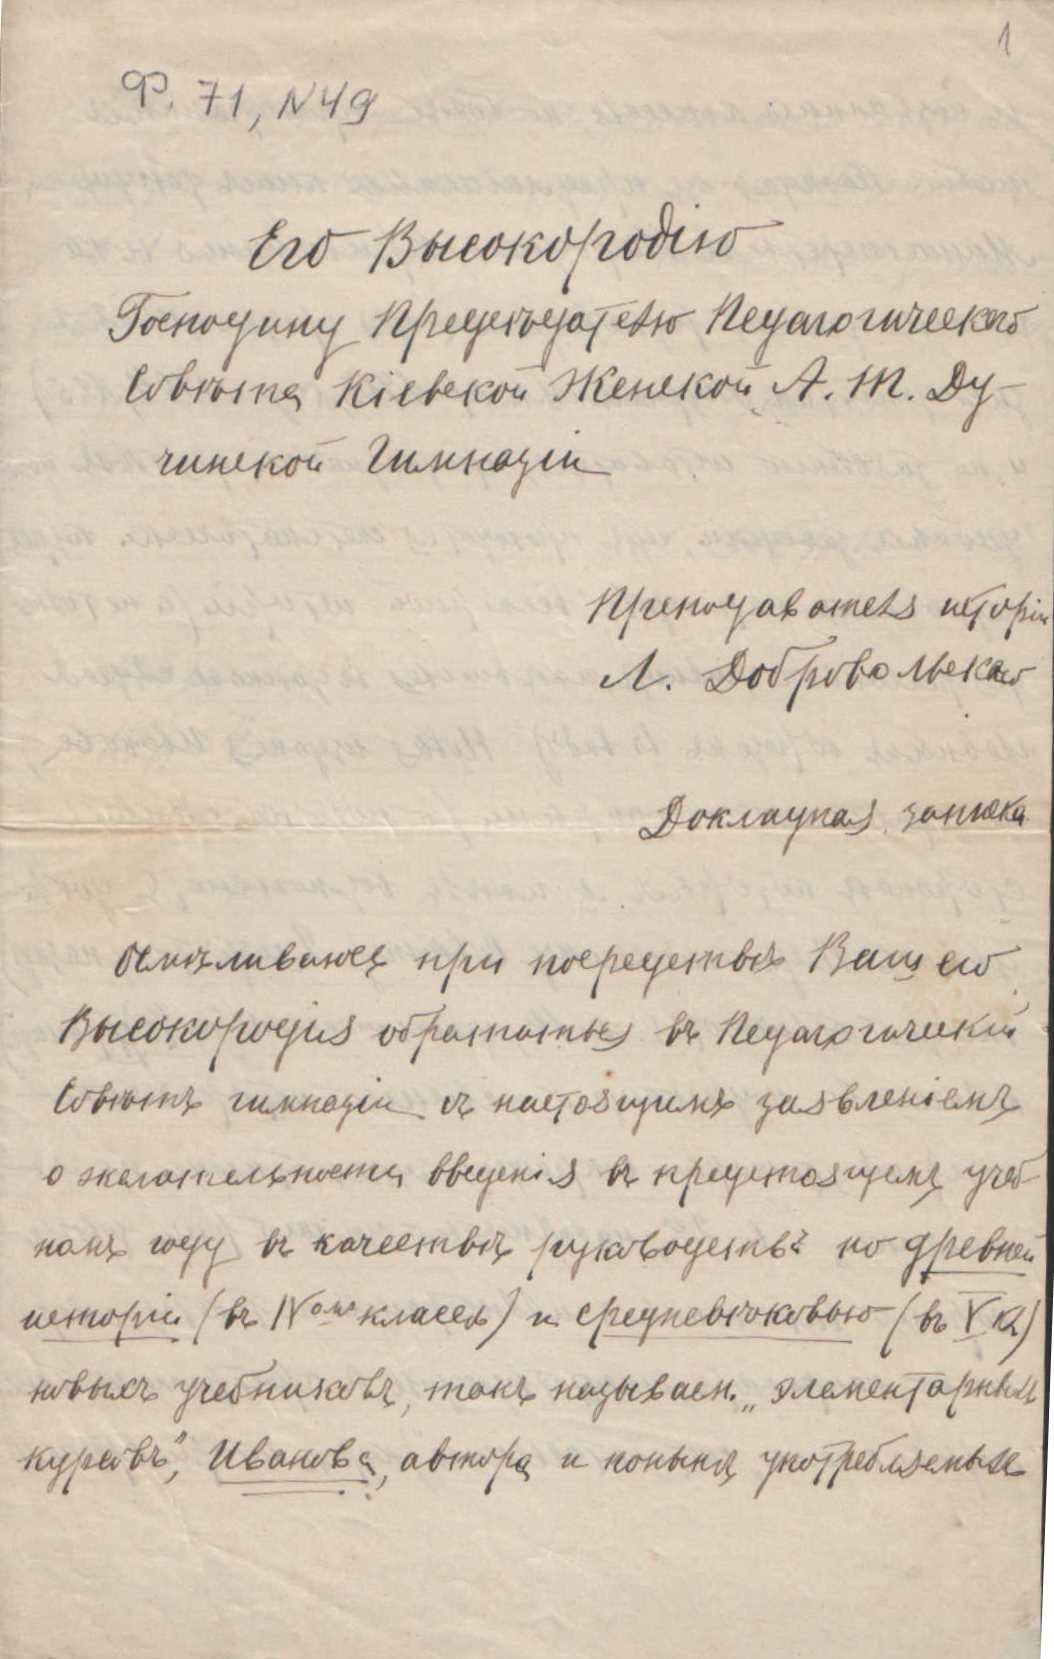 1
Ф. 71, N49
Его Высокородію
Господину Предсѣдателю Педагогическаго
Совѣта Кіевской Женской А. Т. Ду-
чинской Гимназіи
Преподавателя исторіи
Л. Добровольскаго
Докладная записка
Осмѣливаюсь при посредствѣ Вашего
Высокородія обратиться въ Педагогическій
Совѣтъ гимназіи съ настоящимъ заявленіемъ
о желательности введенія въ предстоящемъ учеб-
номъ году въ качествѣ руководствъ по древней
исторіи (въ IVомъ классѣ) и средневѣковью (въ V кл)
новыхъ учебниковъ, такъ называем. „элементарныхъ
курсовъ", Иванова, автора и понынѣ употребляемыхъ